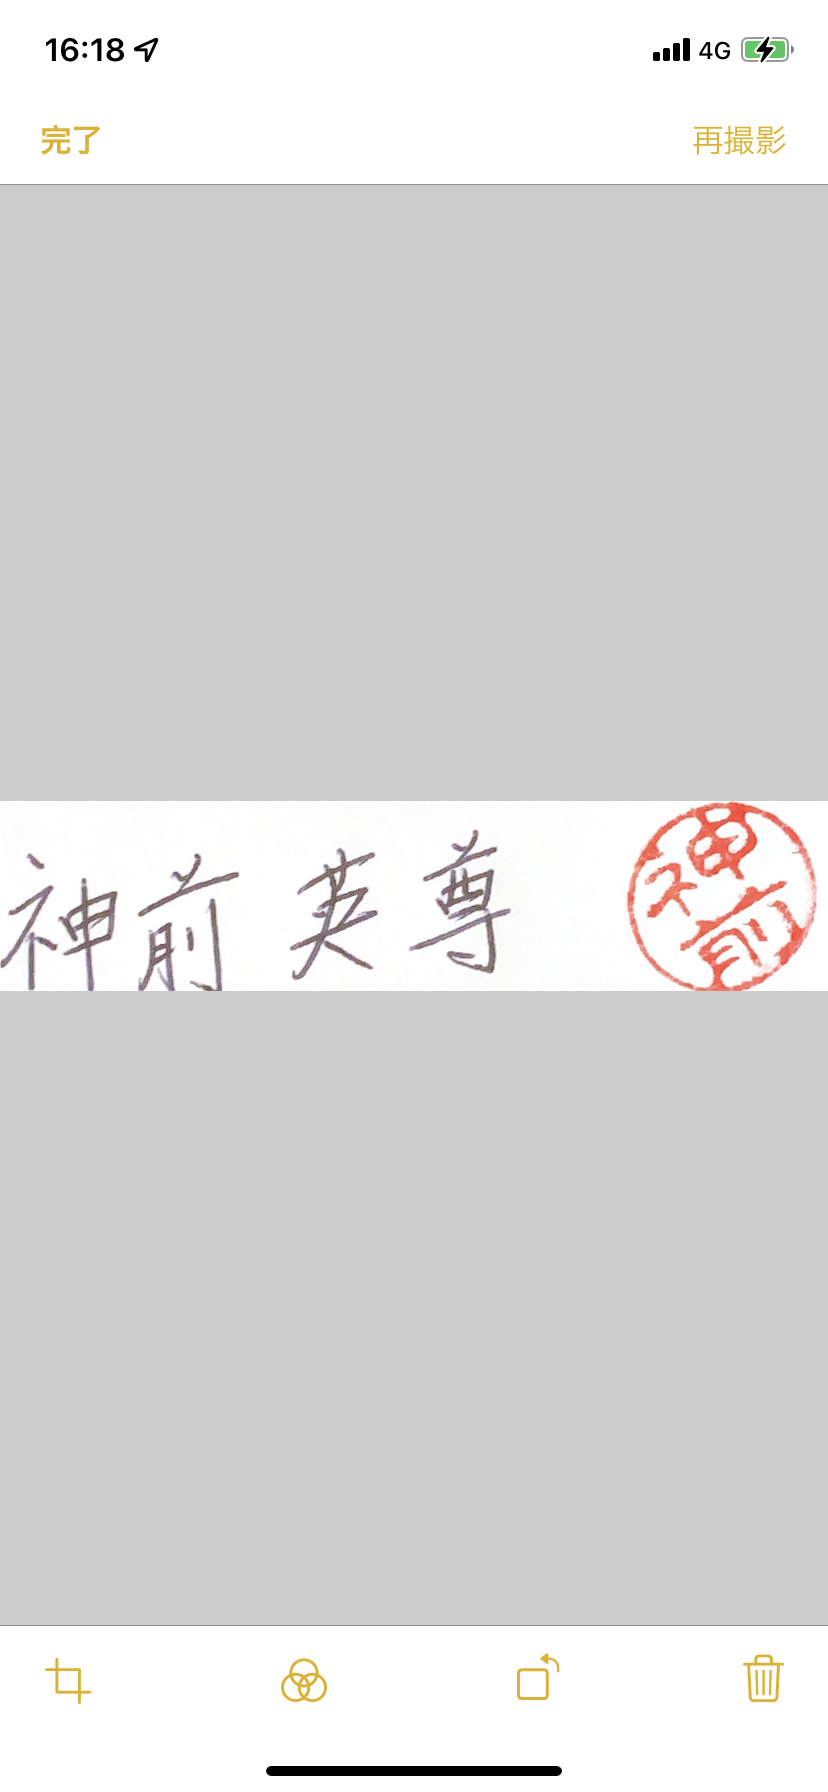 16:18 4G
完了 再撮影
神前 英尊 神前